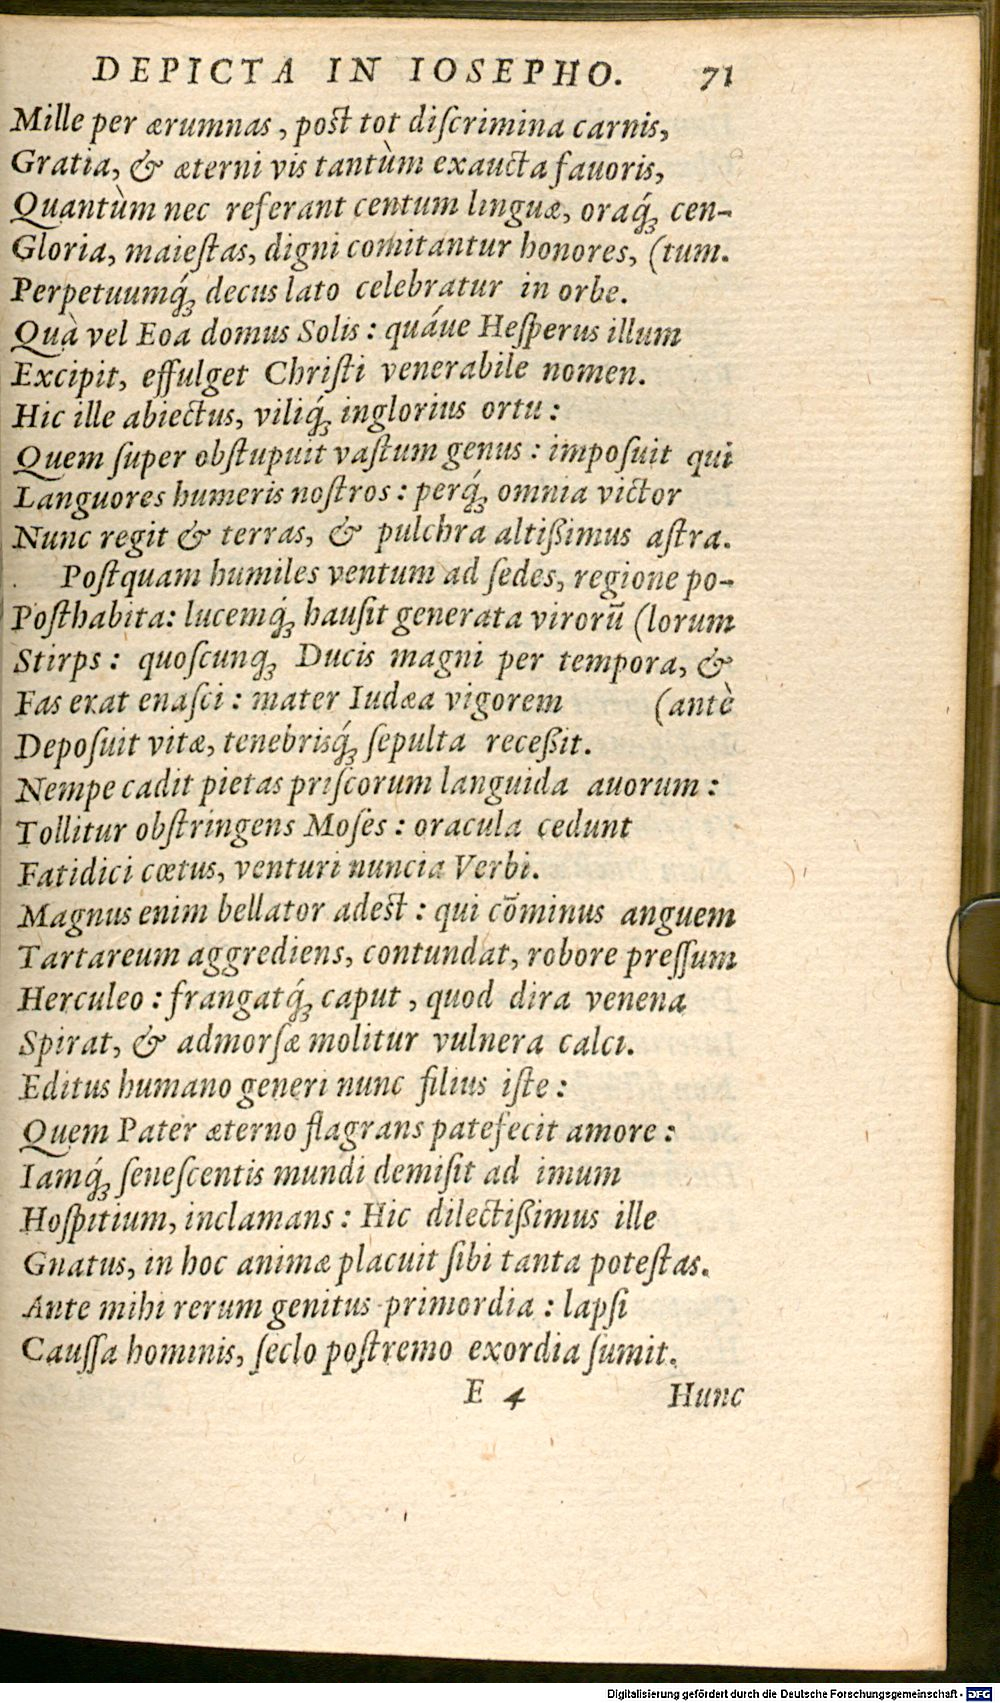 DEPICTA IN IOSEPHO. 71
Mille per ærumnas, post tot diſcrimina carnis,
Gratia, & æterni vis tantùm exaucta fauoris,
Quantùm nec referant centum linguæ, oraq́; cen-
Gloria, maieſtas, digni comitantur honores, (tum.
Perpetuumq́; decus lato celebratur in orbe.
Quà vel Eoa domus Solis: quáue Heſperus illum
Excipit, effulget Chriſti venerabile nomen.
Hic ille abiectus, viliq́; inglorius ortu:
Quem ſuper obſtupuit vaſtum genus: impoſuit qui
Languores humeris noſtros: perq́; omnia victor
Nunc regit & terras, & pulchra altißimus aſtra.
Poſtquam humiles ventum ad ſedes, regione po-
Poſthabita: lucemq́; hauſit generata virorũ (lorum
Stirps: quoſcunq; Ducis magni per tempora, &
Fas erat enaſci: mater Iudæa vigorem (antè
Depoſuit vitæ, tenebrisq́; ſepulta receßit.
Nempe cadit pietas priſcorum languida auorum:
Tollitur obſtringens Moſes: oracula cedunt
Fatidici cœtus, venturi nuncia Verbi.
Magnus enim bellator adest: qui cõminus anguem
Tartareum aggrediens, contundat, robore preſſum
Herculeo: frangatq́; caput, quod dira venena
Spirat, & admorſæ molitur vulnera calci.
Editus humano generi nunc filius iſte:
Quem Pater æterno flagrans patefecit amore:
Iamq́; ſeneſcentis mundi demiſit ad imum
Hoſpitium, inclamans: Hic dilectißimus ille
Gnatus, in hoc animæ placuit ſibi tanta poteſtas.
Ante mihi rerum genitus primordia: lapſi
Cauſſa hominis, ſeclo poſtremo exordia ſumit.
E 4 Hunc
Digitalisierung gefördert durch die Deutsche Forschungsgemeinschaft - DFG